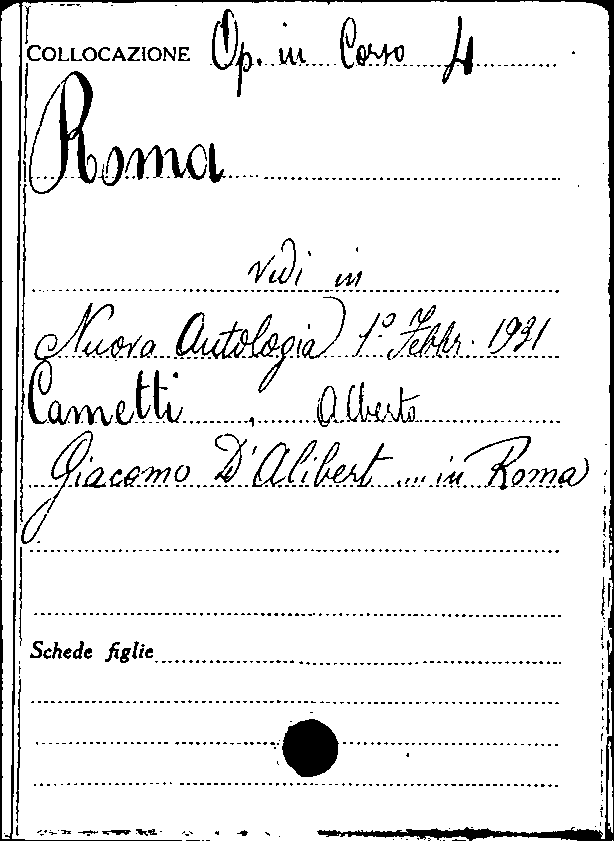 COLLOCAZIONE Op. in Corso 4
Roma
vedi in
Nuova Antologia 1º Febbr. 1931
Cametti, Alberto
Giacomo D'Alibert .... in Roma
Schede figlie